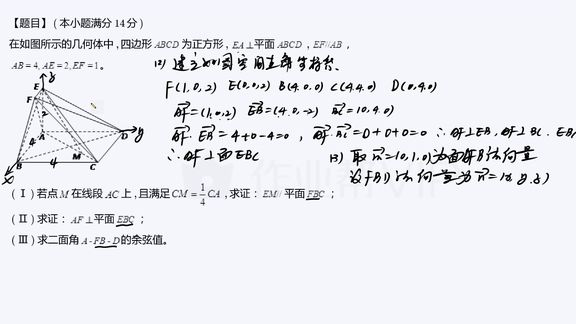 【题目】(本小题满分14分)
在如图所示的几何体中,四边形ABCD为正方形,EA⊥平面ABCD,EF//AB,
AB=4,AE=2,EF=1。
(2) 建立如图空间直角坐标系
F(1,0,2) E(0,0,2) B(4,0,0) C(4,4,0) D(0,4,0)
AF=(1,0,2) EB=(4,0,-2) BC=(0,4,0)
AF·EB=4+0-4=0, AF·BC=0+0+0=0 ∴AF⊥EB, AF⊥BC. EB∩
∴AF⊥面EBC
(3) 取n=(0,1,0)为面AFB法向量
设FBD法向量为n=(x,y,z)
z
E
F
2
A
4
D
y
M
B
4
C
x
(Ⅰ)若点M在线段AC上,且满足CM=1/4CA,求证:EM//平面FBC;
(Ⅱ)求证:AF⊥平面EBC;
(Ⅲ)求二面角A-FB-D的余弦值。